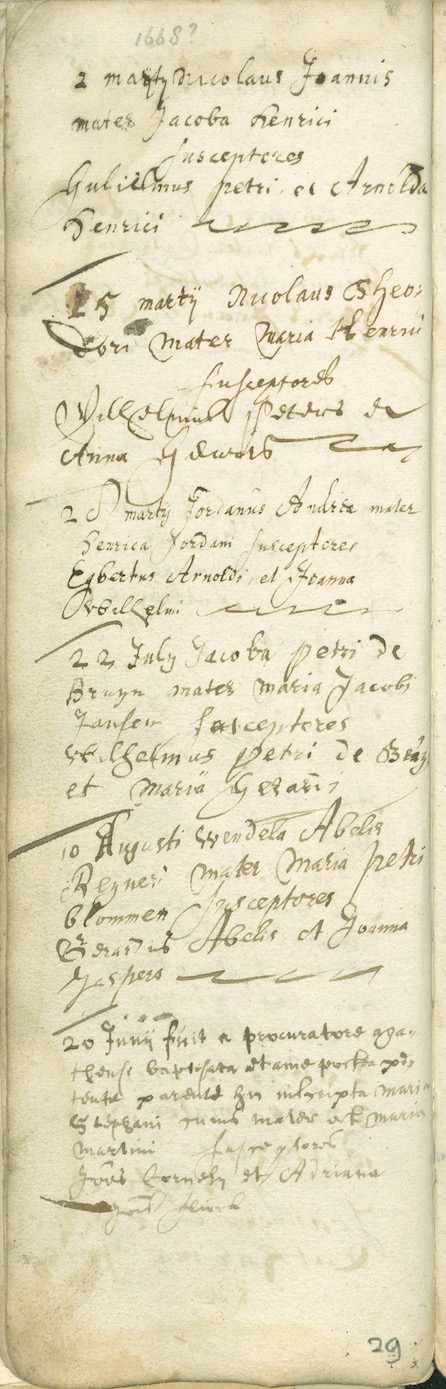 1668?
2 martij Nicolaus Joannis
mater Jacoba Henrici
susceptores
Gulielmus petri et Arnolda
Henrici
15 martij Nicolaus Theo-
dori mater Maria Henrici
susceptores
Wilhelmus Peters et
Anna
28 martij Jordanus Andrea mater
Henrica Jordani susceptores
Egbertus Arnoldi et Joanna
Wilhelmi
22 July Jacoba petri de
Bruyn mater maria Jacobi
Jansen susceptores
Wilhelmus petri de
et Maria Gerardi
10 Augusti Wendela Abelis
Reyneri mater Maria petri
blommen susceptores
Gerardus Abelis et Joanna
Jaspers
20 Junij fuit a procuratore aga-
thense baptisata et a me postea
parente inscripta Maria
Stephani cuius mater est Maria
Martini susceptores
Joes Cornely et Adriana
29